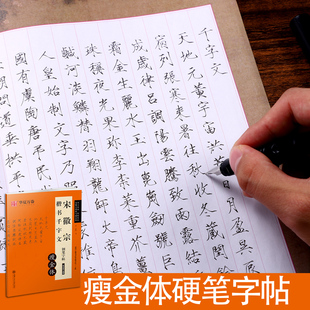 千字文
天地元黄宇宙洪荒日月盈昃辰
宿列張寒來暑往秋收冬藏閏餘
成歲律呂調陽雲騰致雨露結為
霜金生麗水玉出崑岡劍號巨闕
珠稱夜光果珍李柰菜重芥薑海
鹹河淡鱗潛羽翔龍師火帝鳥官
人皇始制文字乃服
國有虞陶唐弔民
問道垂拱平
华夏万卷
宋徽宗
楷书千字文
瘦金体
瘦金体硬笔字帖